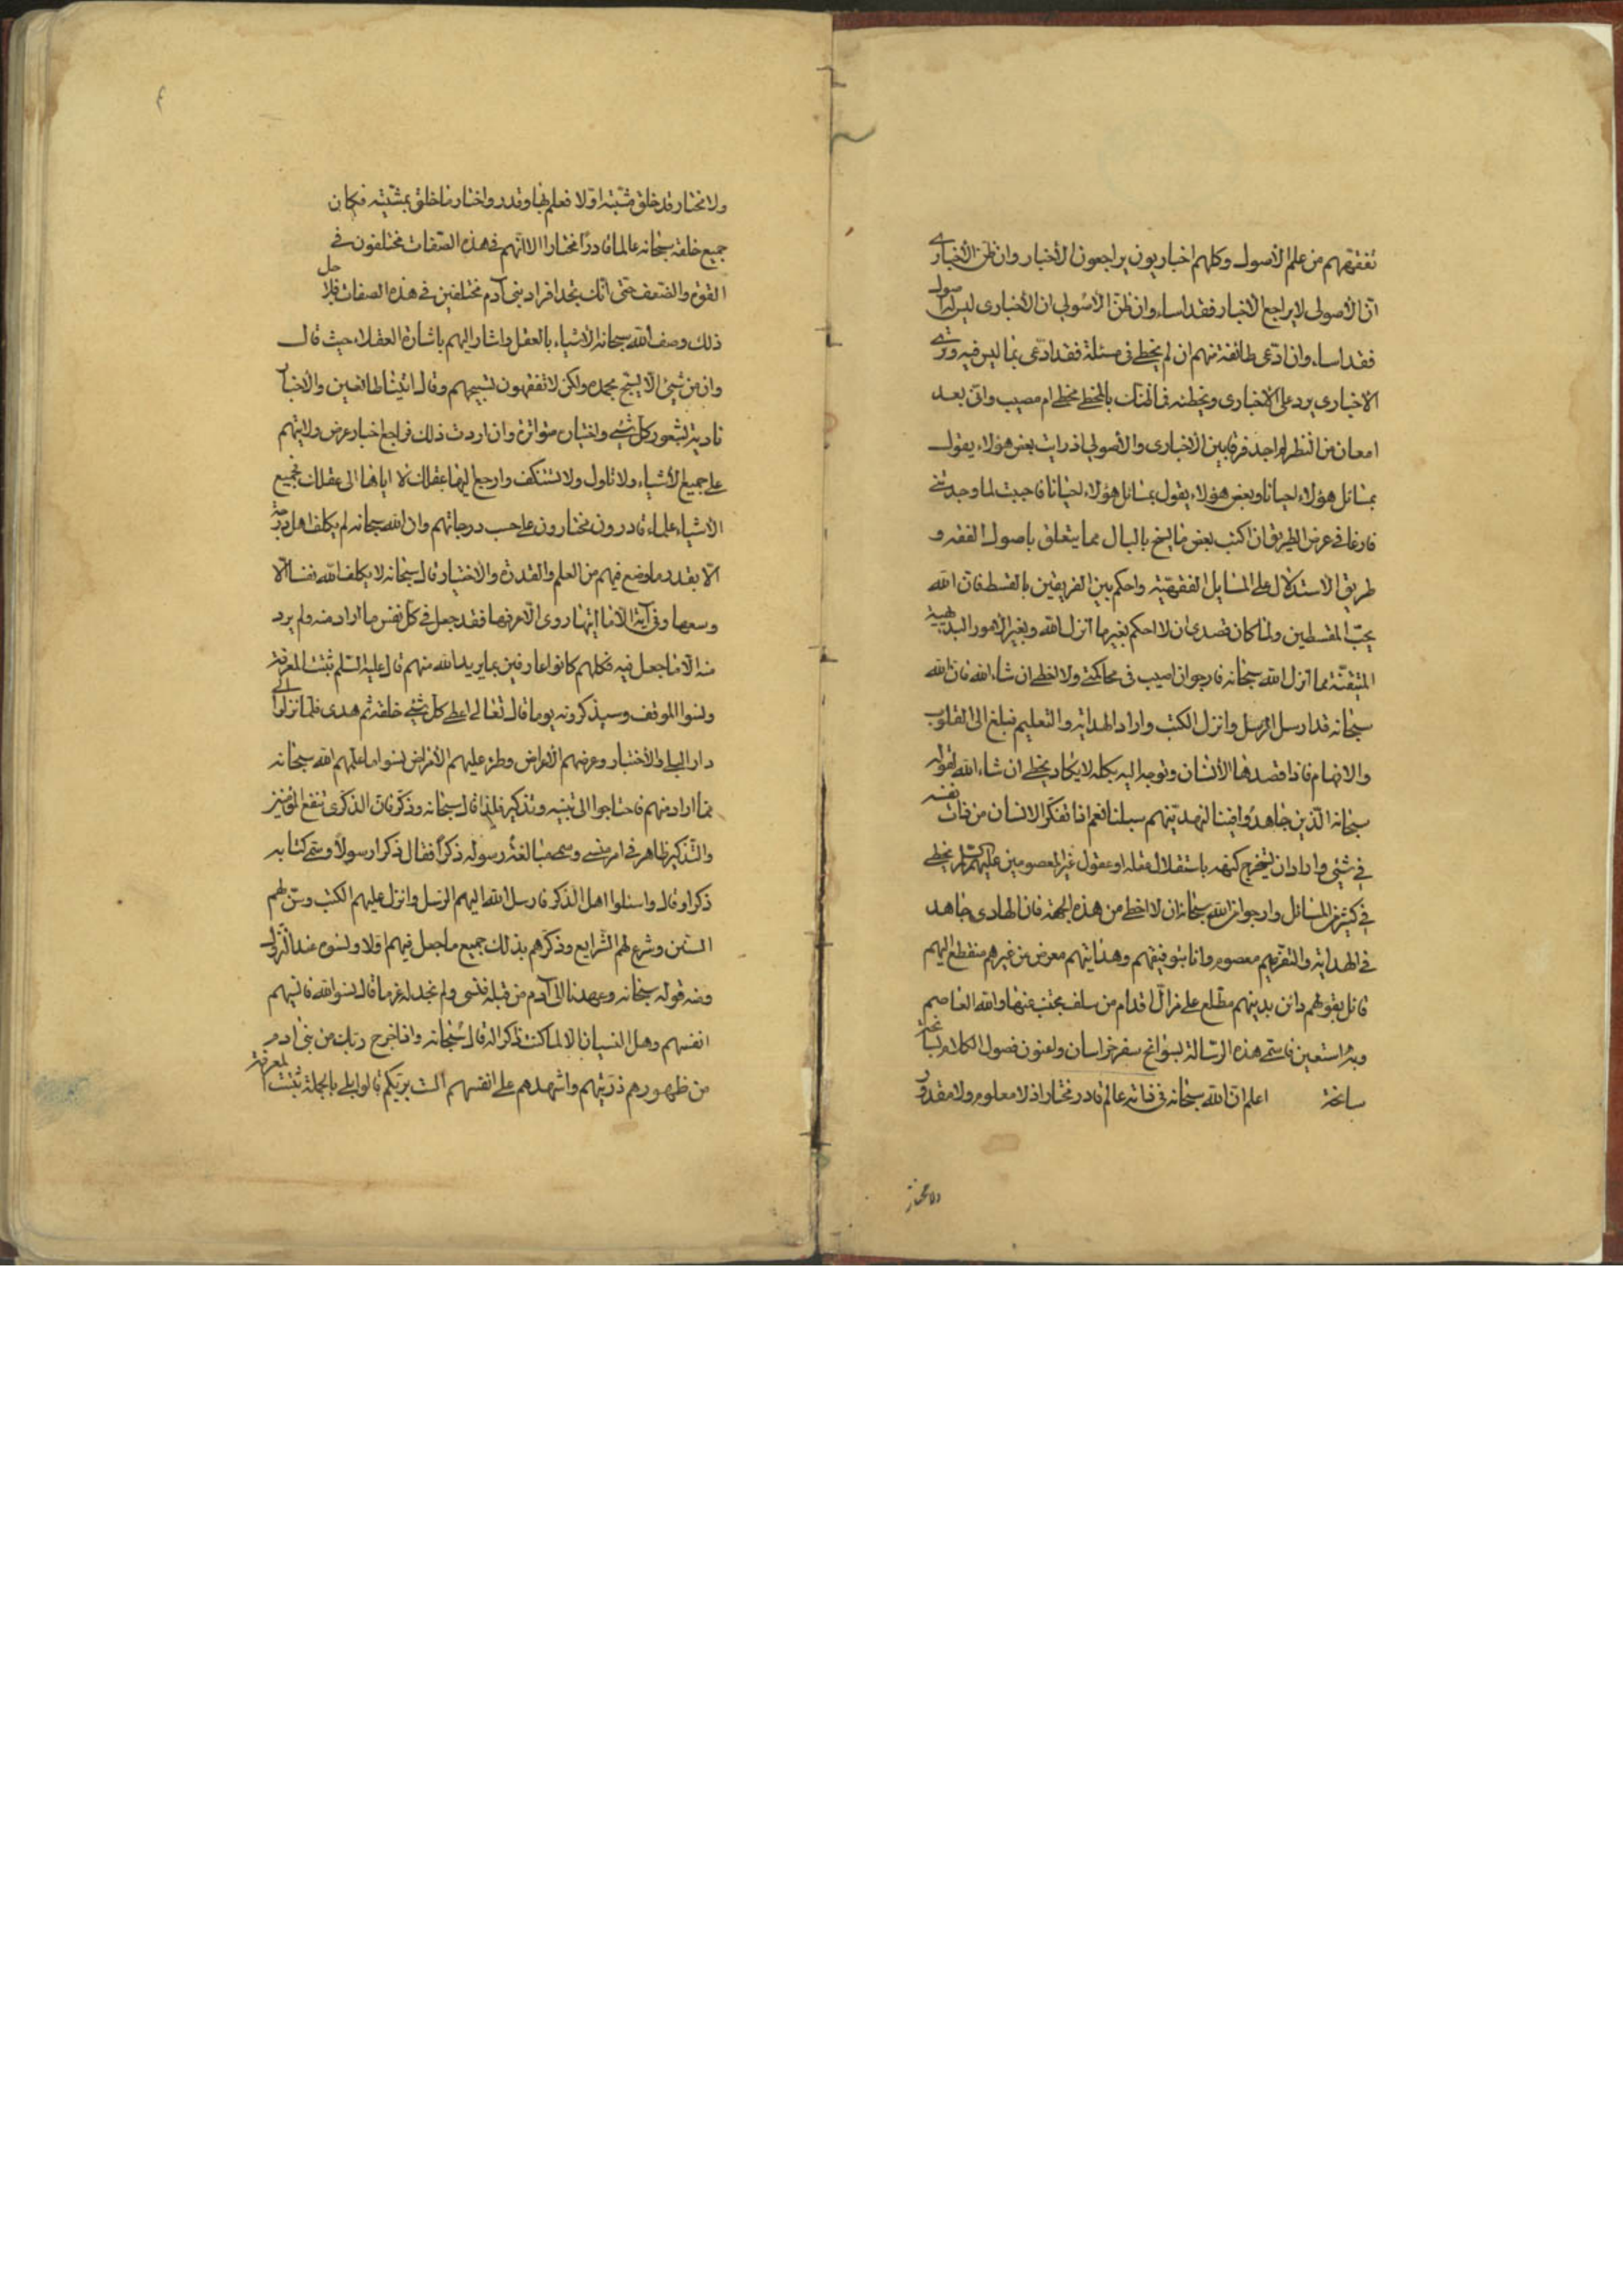 تفقههم من علم الأصول وكلهم اخباريون يراجعون الأخبار وان ظن الأخباري
ان الأصولي لا يراجع الاخبار فقد اساء وان ظن الأصولي ان الأخباري ليس له اصول
فقد اساء وان ادعى طائفة منهم ان لم يخطئ في مسئلة فقد ادعى بما ليس فيه ونرى
الاخباري يرد على الاخباري ويخطئه فما ظنك بالمخطئ مخطئ ام مصيب واني بعد
امعان من النظر لم اجد فرقا بين الأخباري والأصولي اذ رايت بعض هؤلاء يقول
بمسائل هؤلاء احيانا وبعض هؤلاء يقول بمسائل هؤلاء احيانا فاحببت لما وجدتني
فارغا في عرض الطريق ان اكتب بعض ما يسنح بالبال مما يتعلق باصول الفقه و
طريق الاستدلال على المسايل الفقهية واحكم بين الفريقين بالقسط فان الله
يحب المقسطين ولما كان قصدي ان لا احكم بغير ما انزل الله وبغير الأمور البديهية
المتيقنة مما انزل الله سبحانه فارجو ان اصيب في محاكمتي ولا اخطئ ان شاء الله فان الله
سبحانه قد ارسل الرسل وانزل الكتب واراد الهداية والتعليم فبلغ الى القلوب
والافهام فاذا قصدها الأنسان وتوجه اليه بكله لا يكاد يخطئ ان شاء الله لقوله
سبحانه الذين جاهدوا فينا لنهدينهم سبلنا نعم اذا تفكر الانسان من ذات نفسه
في شيئ واراد ان يستخرج كنهه باستقلال عقله او عقول غير المعصومين عليهم السلام يخطئ
في كثير من المسائل وارجو من الله سبحانه ان لا اخطئ من هذه الجهة فان الهادي جاهد
في الهداية والتقريب معصوم وانا بتوفيقهم وهدايتهم معرض من غيرهم منقطع اليهم
قائل بقولهم دائن بدينهم مطلع على مزال اقدام من سلف مجتنب عنها والله العاصم
وبه استعين فاسمي هذه الرسالة بسوانح سفر خراسان واعنون فصول الكلام بسانحة
سانحة اعلم ان الله سبحانه في ذاته عالم قادر مختار اذ لا معلوم ولا مقدور
ولا مختار
ولا مختار قد خلق مشيته اولا فعلم بها وقدر واختار ما خلق بمشيته فكان
جميع خلقه سبحانه عالما قادرا مختارا الا انهم في هذه الصفات مختلفون في
القوة والضعف حتى انك تجد افراد بني آدم مختلفين في هذه الصفات فلاجل
ذلك وصف الله سبحانه الأشياء بالعقل واشار اليهم باشارة العقلاء حيث قال
وان من شيئ الا يسبح بحمده ولكن لا تفقهون تسبيحهم وقال اتينا طائعين والاخبار
نادية بشعور كل شيئ واختياره متواترة وان اردت ذلك فراجع اخبار عرض ولايتهم
على جميع الأشياء ولا تاول ولا تستنكف وارجع اليها عقلك لا اياها الى عقلك فجميع
الأشياء علماء قادرون مختارون على حسب درجاتهم وان الله سبحانه لم يكلف اهل درجة
الا بقدر ما وضع فيهم من العلم والقدرة والاختيار قال سبحانه لا يكلف الله نفسا الا
وسعها وفي آية الا ما اتيها روى الا عرفها فقد جعل في كل نفس ما اراد منه ولم يرد
منه الا ما جعل فيه فكلهم كانوا عارفين بما يريد الله منهم قال عليه السلم ثبتت المعرفة
ونسوا الموقف وسيذكرونه يوما قال تعالى اعطى كل شيئ خلقه ثم هدى فلما نزلوا الى
دار البلاء والأختبار وعرضهم الأعراض وطرء عليهم الأمراض نسوا ما علمهم الله سبحانه
مما اراد منهم فاحتاجوا الى تنبيه وتذكير فلذا قال سبحانه وذكر فان الذكرى تنفع المؤمنين
والتذكير ظاهر في امر منسي وسمى مبالغة رسوله ذكرا فقال ذكرا رسولا وسمى كتابه
ذكرا وقال واسئلوا اهل الذكر فارسل الله اليهم الرسل وانزل عليهم الكتب وسن لهم
السنن وشرع لهم الشرايع وذكرهم بذلك جميع ما جعل فيهم اولا ونسوه عند النزول
ومنه قوله سبحانه وعهدنا الى آدم من قبل فنسي ولم نجد له عزما قال نسوا الله فانسيهم
انفسهم وهل النسيان الا لما كنت ذاكرا له قال سبحانه واذ اخرج ربك من بني ادم
من ظهورهم ذريتهم واشهدهم على انفسهم الست بربكم قالوا بلى بالجملة ثبتت المعرفة